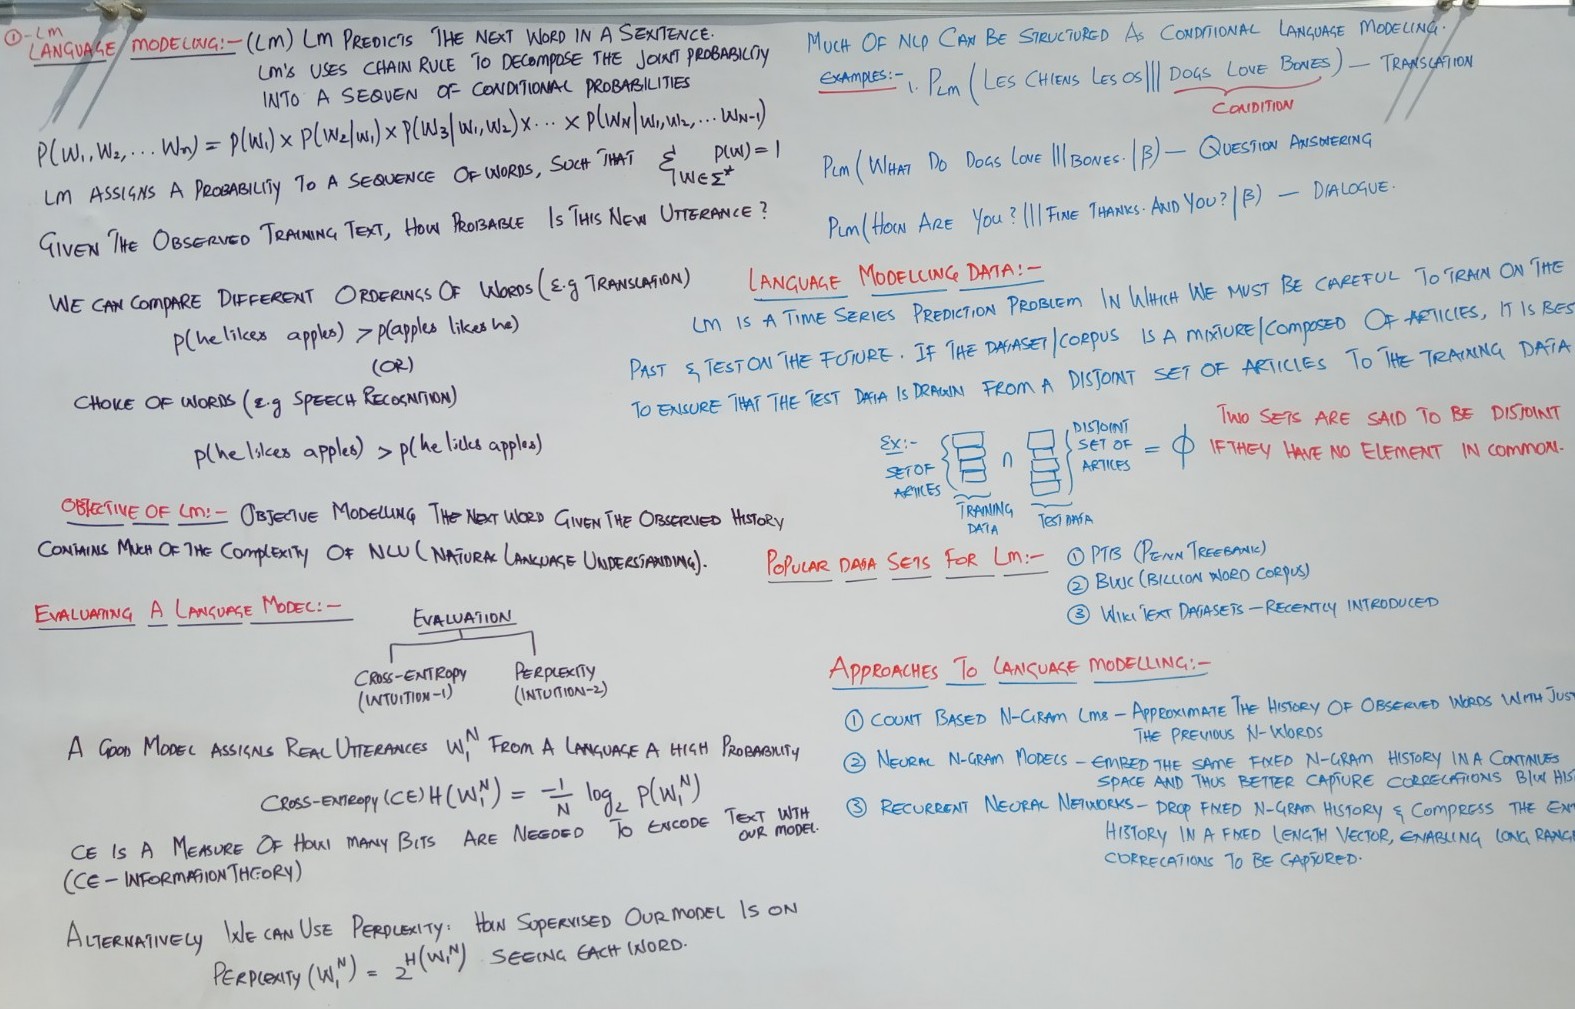 ①-LM
LANGUAGE MODELING:- (LM) LM PREDICTS THE NEXT WORD IN A SENTENCE.
LM'S USES CHAIN RULE TO DECOMPOSE THE JOINT PROBABILITY
INTO A SEQUEN OF CONDITIONAL PROBABILITIES
P(W₁, W₂, ... Wn) = P(W₁) x P(W₂|W₁) x P(W₃|W₁,W₂) x ... x P(WN|W₁,W₂,... WN-1)
LM ASSIGNS A PROBABILITY TO A SEQUENCE OF WORDS, SUCH THAT Σ W∈Σ* P(W) = 1
GIVEN THE OBSERVED TRAINING TEXT, HOW PROBABLE IS THIS NEW UTTERANCE?
WE CAN COMPARE DIFFERENT ORDERINGS OF WORDS (E.g TRANSLATION)
p(he likes apples) > p(apples likes he)
(OR)
CHOICE OF WORDS (E.g SPEECH RECOGNITION)
p(he likes apples) > p(he licks apples)
OBJECTIVE OF LM:- OBJECTIVE MODELLING THE NEXT WORD GIVEN THE OBSERVED HISTORY
CONTAINS MUCH OF THE COMPLEXITY OF NLU (NATURAL LANGUAGE UNDERSTANDING).
EVALUATING A LANGUAGE MODEL:-
EVALUATION
CROSS-ENTROPY PERPLEXITY
(INTUITION-1) (INTUITION-2)
A GOOD MODEL ASSIGNS REAL UTTERANCES W₁ᴺ FROM A LANGUAGE A HIGH PROBABILITY
CROSS-ENTROPY (CE) H(W₁ᴺ) = -1/N log₂ P(W₁ᴺ)
CE IS A MEASURE OF HOW MANY BITS ARE NEEDED TO ENCODE TEXT WITH OUR MODEL.
(CE - INFORMATION THEORY)
ALTERNATIVELY WE CAN USE PERPLEXITY: HOW SUPERVISED OUR MODEL IS ON
PERPLEXITY (W₁ᴺ) = 2^H(W₁ᴺ) SEEING EACH WORD.
MUCH OF NLP CAN BE STRUCTURED AS CONDITIONAL LANGUAGE MODELING.
EXAMPLES:- 1. PLM (LES CHIENS LES OS||| DOGS LOVE BONES) - TRANSLATION
CONDITION
PLM (WHAT DO DOGS LOVE ||| BONES. | β) - QUESTION ANSWERING
PLM (HOW ARE YOU? ||| FINE THANKS. AND YOU? | β) - DIALOGUE.
LANGUAGE MODELLING DATA:-
LM IS A TIME SERIES PREDICTION PROBLEM IN WHICH WE MUST BE CAREFUL TO TRAIN ON THE
PAST & TEST ON THE FUTURE. IF THE DATASET/CORPUS IS A MIXTURE/COMPOSED OF ARTICLES, IT IS BES
TO ENSURE THAT THE TEST DATA IS DRAWN FROM A DISJOINT SET OF ARTICLES TO THE TRAINING DATA
EX:-
SET OF
ARTICLES
∩
DISJOINT
SET OF
ARTICES
= ϕ
TRAINING
DATA
TEST DATA
TWO SETS ARE SAID TO BE DISJOINT
IF THEY HAVE NO ELEMENT IN COMMON.
POPULAR DATA SETS FOR LM:- ① PTB (PENN TREEBANK)
② BWC (BILLION WORD CORPUS)
③ WIKI TEXT DATASETS - RECENTLY INTRODUCED
APPROACHES TO LANGUAGE MODELLING:-
① COUNT BASED N-GRAM LMS - APPROXIMATE THE HISTORY OF OBSERVED WORDS WITH JUST
THE PREVIOUS N-WORDS
② NEURAL N-GRAM MODELS - EMBED THE SAME FIXED N-GRAM HISTORY IN A CONTINUES
SPACE AND THUS BETTER CAPTURE CORRELATIONS B/W HIS
③ RECURRENT NEURAL NETWORKS - DROP FIXED N-GRAM HISTORY & COMPRESS THE EN
HISTORY IN A FIXED LENGTH VECTOR, ENABLING LONG RANG
CORRELATIONS TO BE CAPTURED.